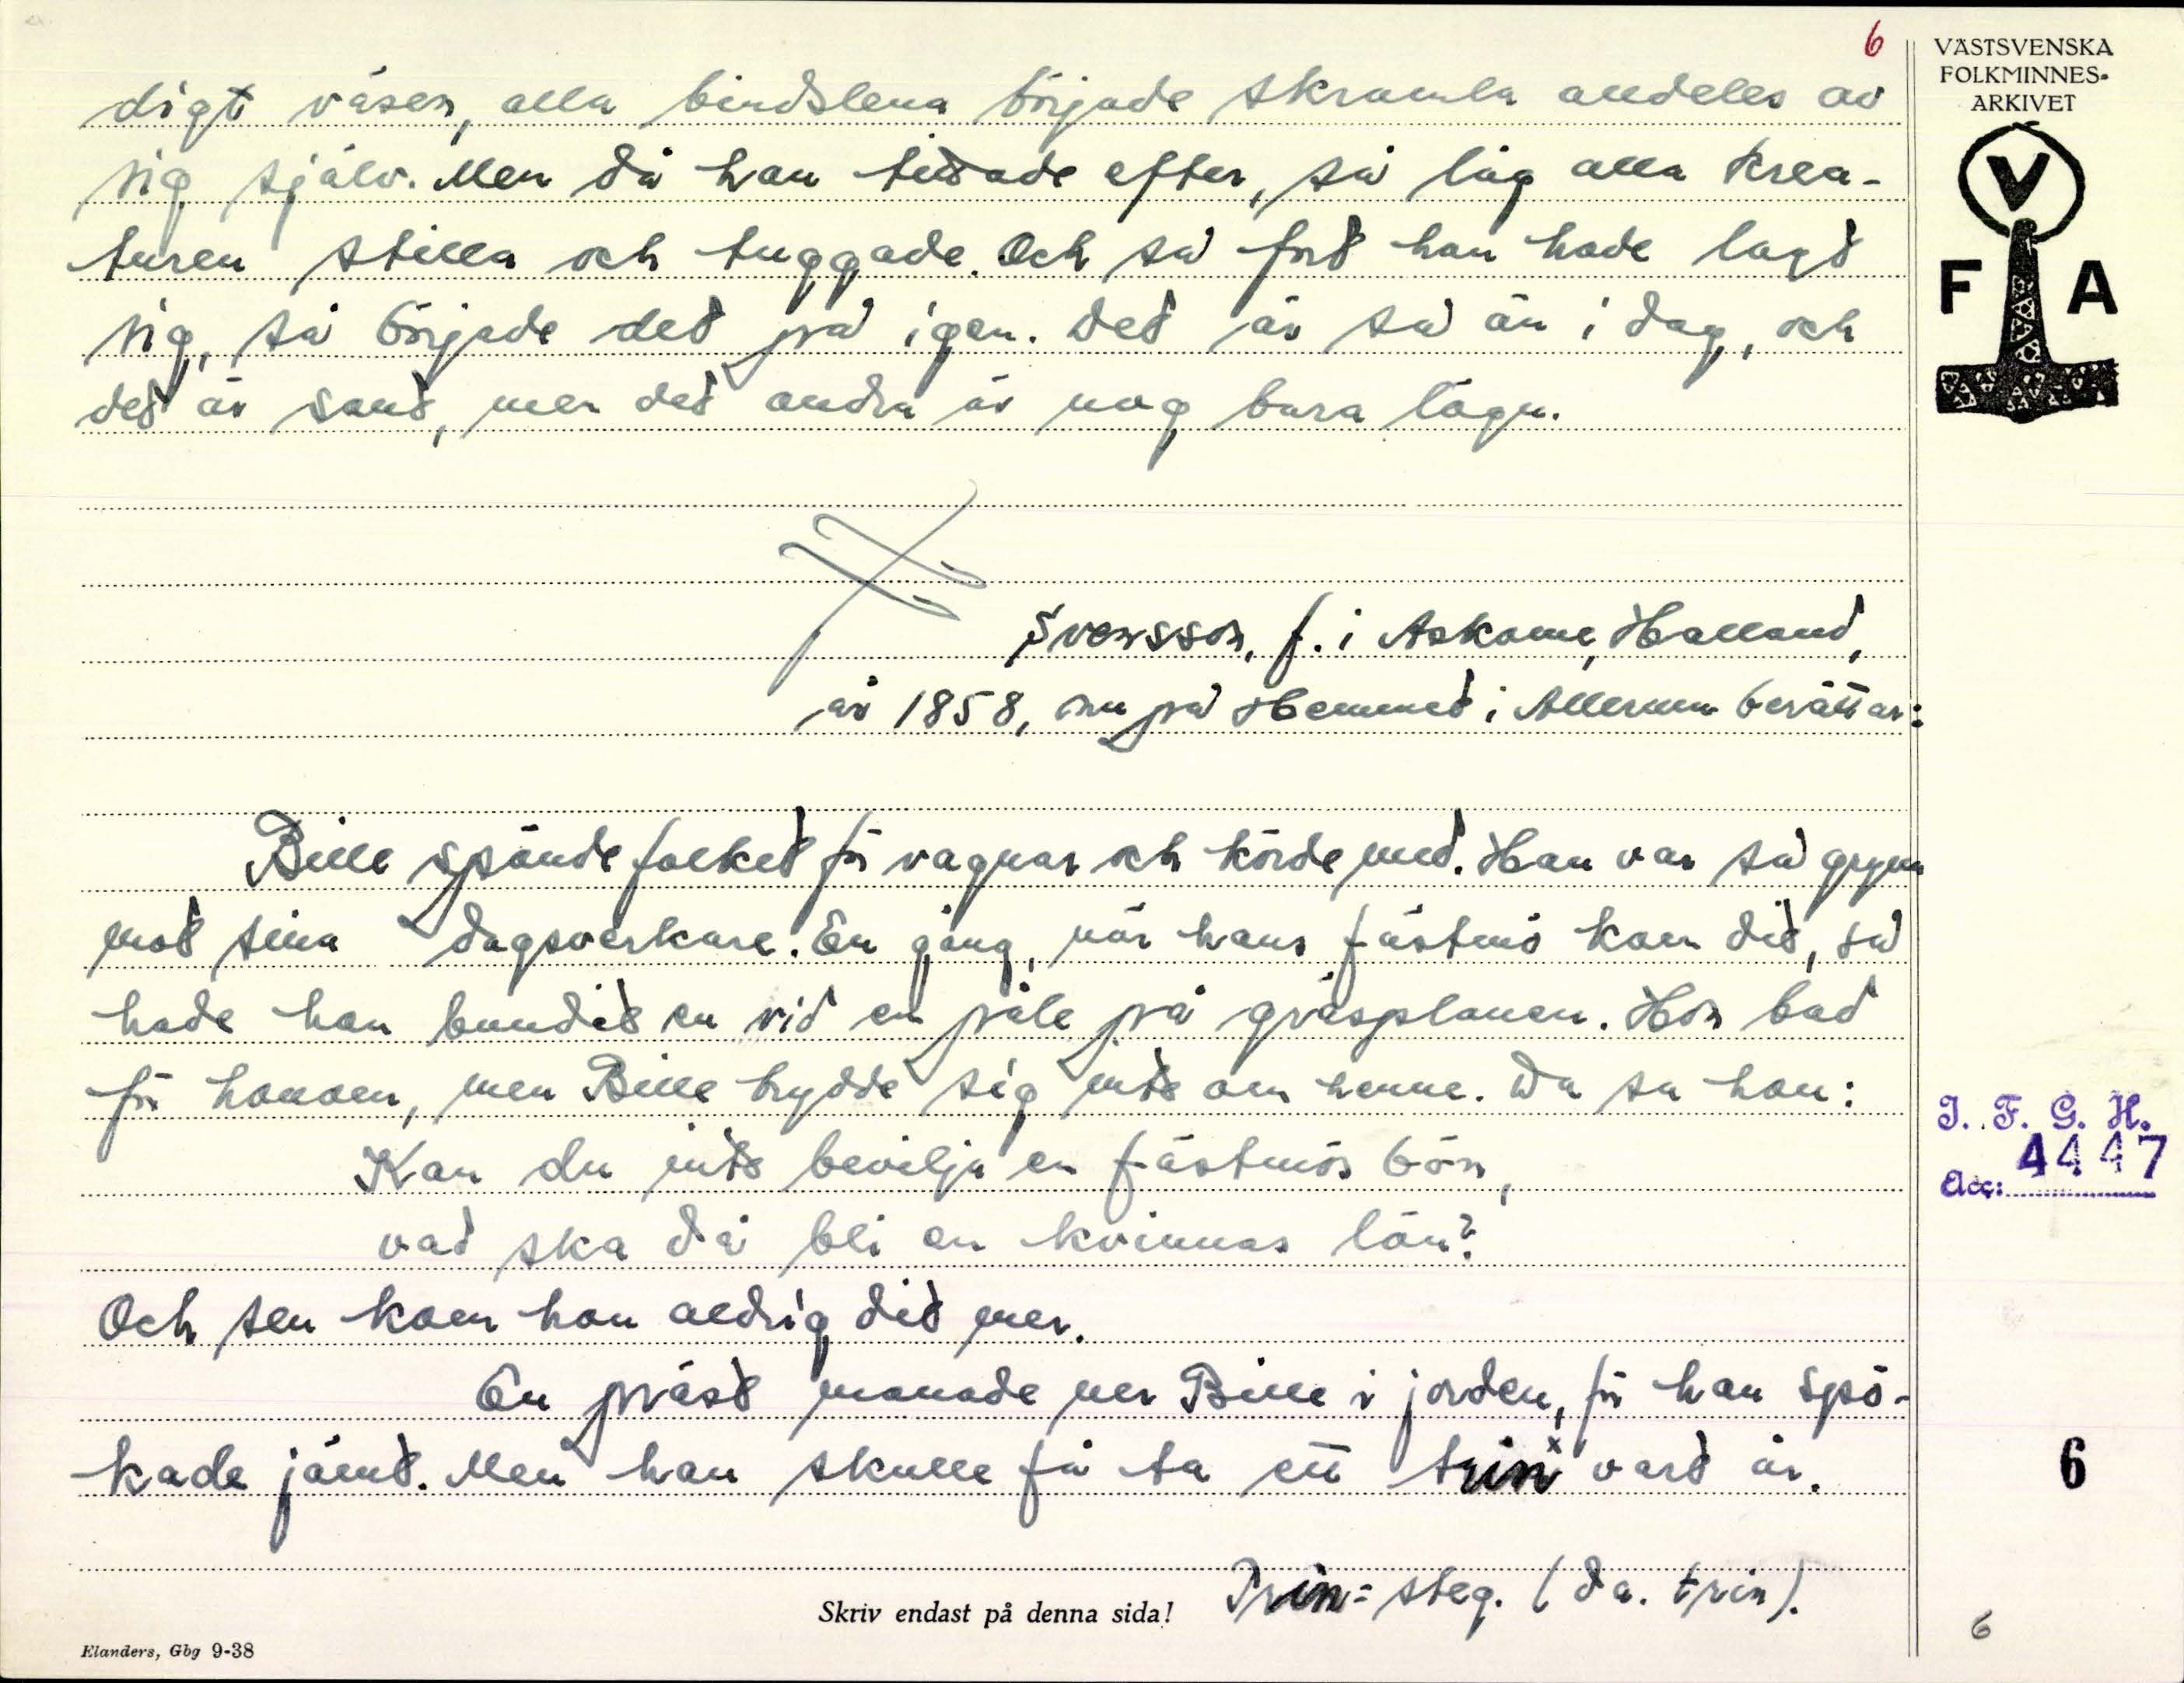 6
VÄSTSVENSKA
FOLKMINNES-
ARKIVET
V
F A
digt väsen, alla bindslena började skramla alldeles av
sig själv. Men då han tittade efter, så låg alla krea-
turen stilla och tuggade. Och så fort han hade lagt
sig, så började det på igen. Det är så än i dag, och
det är sant, men det andra är nog bara lögn.
Svensson, f. i Askome, Halland,
år 1858, nu på Hemmet i Allerum berättar:
Bille spände folket för vagnar och körde med. Han var så grym
mot sina dagsverkare. En gång, när hans fästmö kom dit, så
hade han bundit en vid en påle på gräsplanen. Hon bad
för honom, men Bille brydde sig inte om henne. Da sa hon:
Kan du inte bevilja en fästmös bön,
vad ska då bli en kvinnas lön?
Och sen kom hon aldrig dit mer.
En präst manade ner Bille i jorden, för han spö-
kade jämt. Men han skulle få ta ett trin x vart år.
Trin = steg. (da. trin).
I. F. G. H.
Acc: 4447
6
Skriv endast på denna sida!
Elanders, Gbg 9-38
6